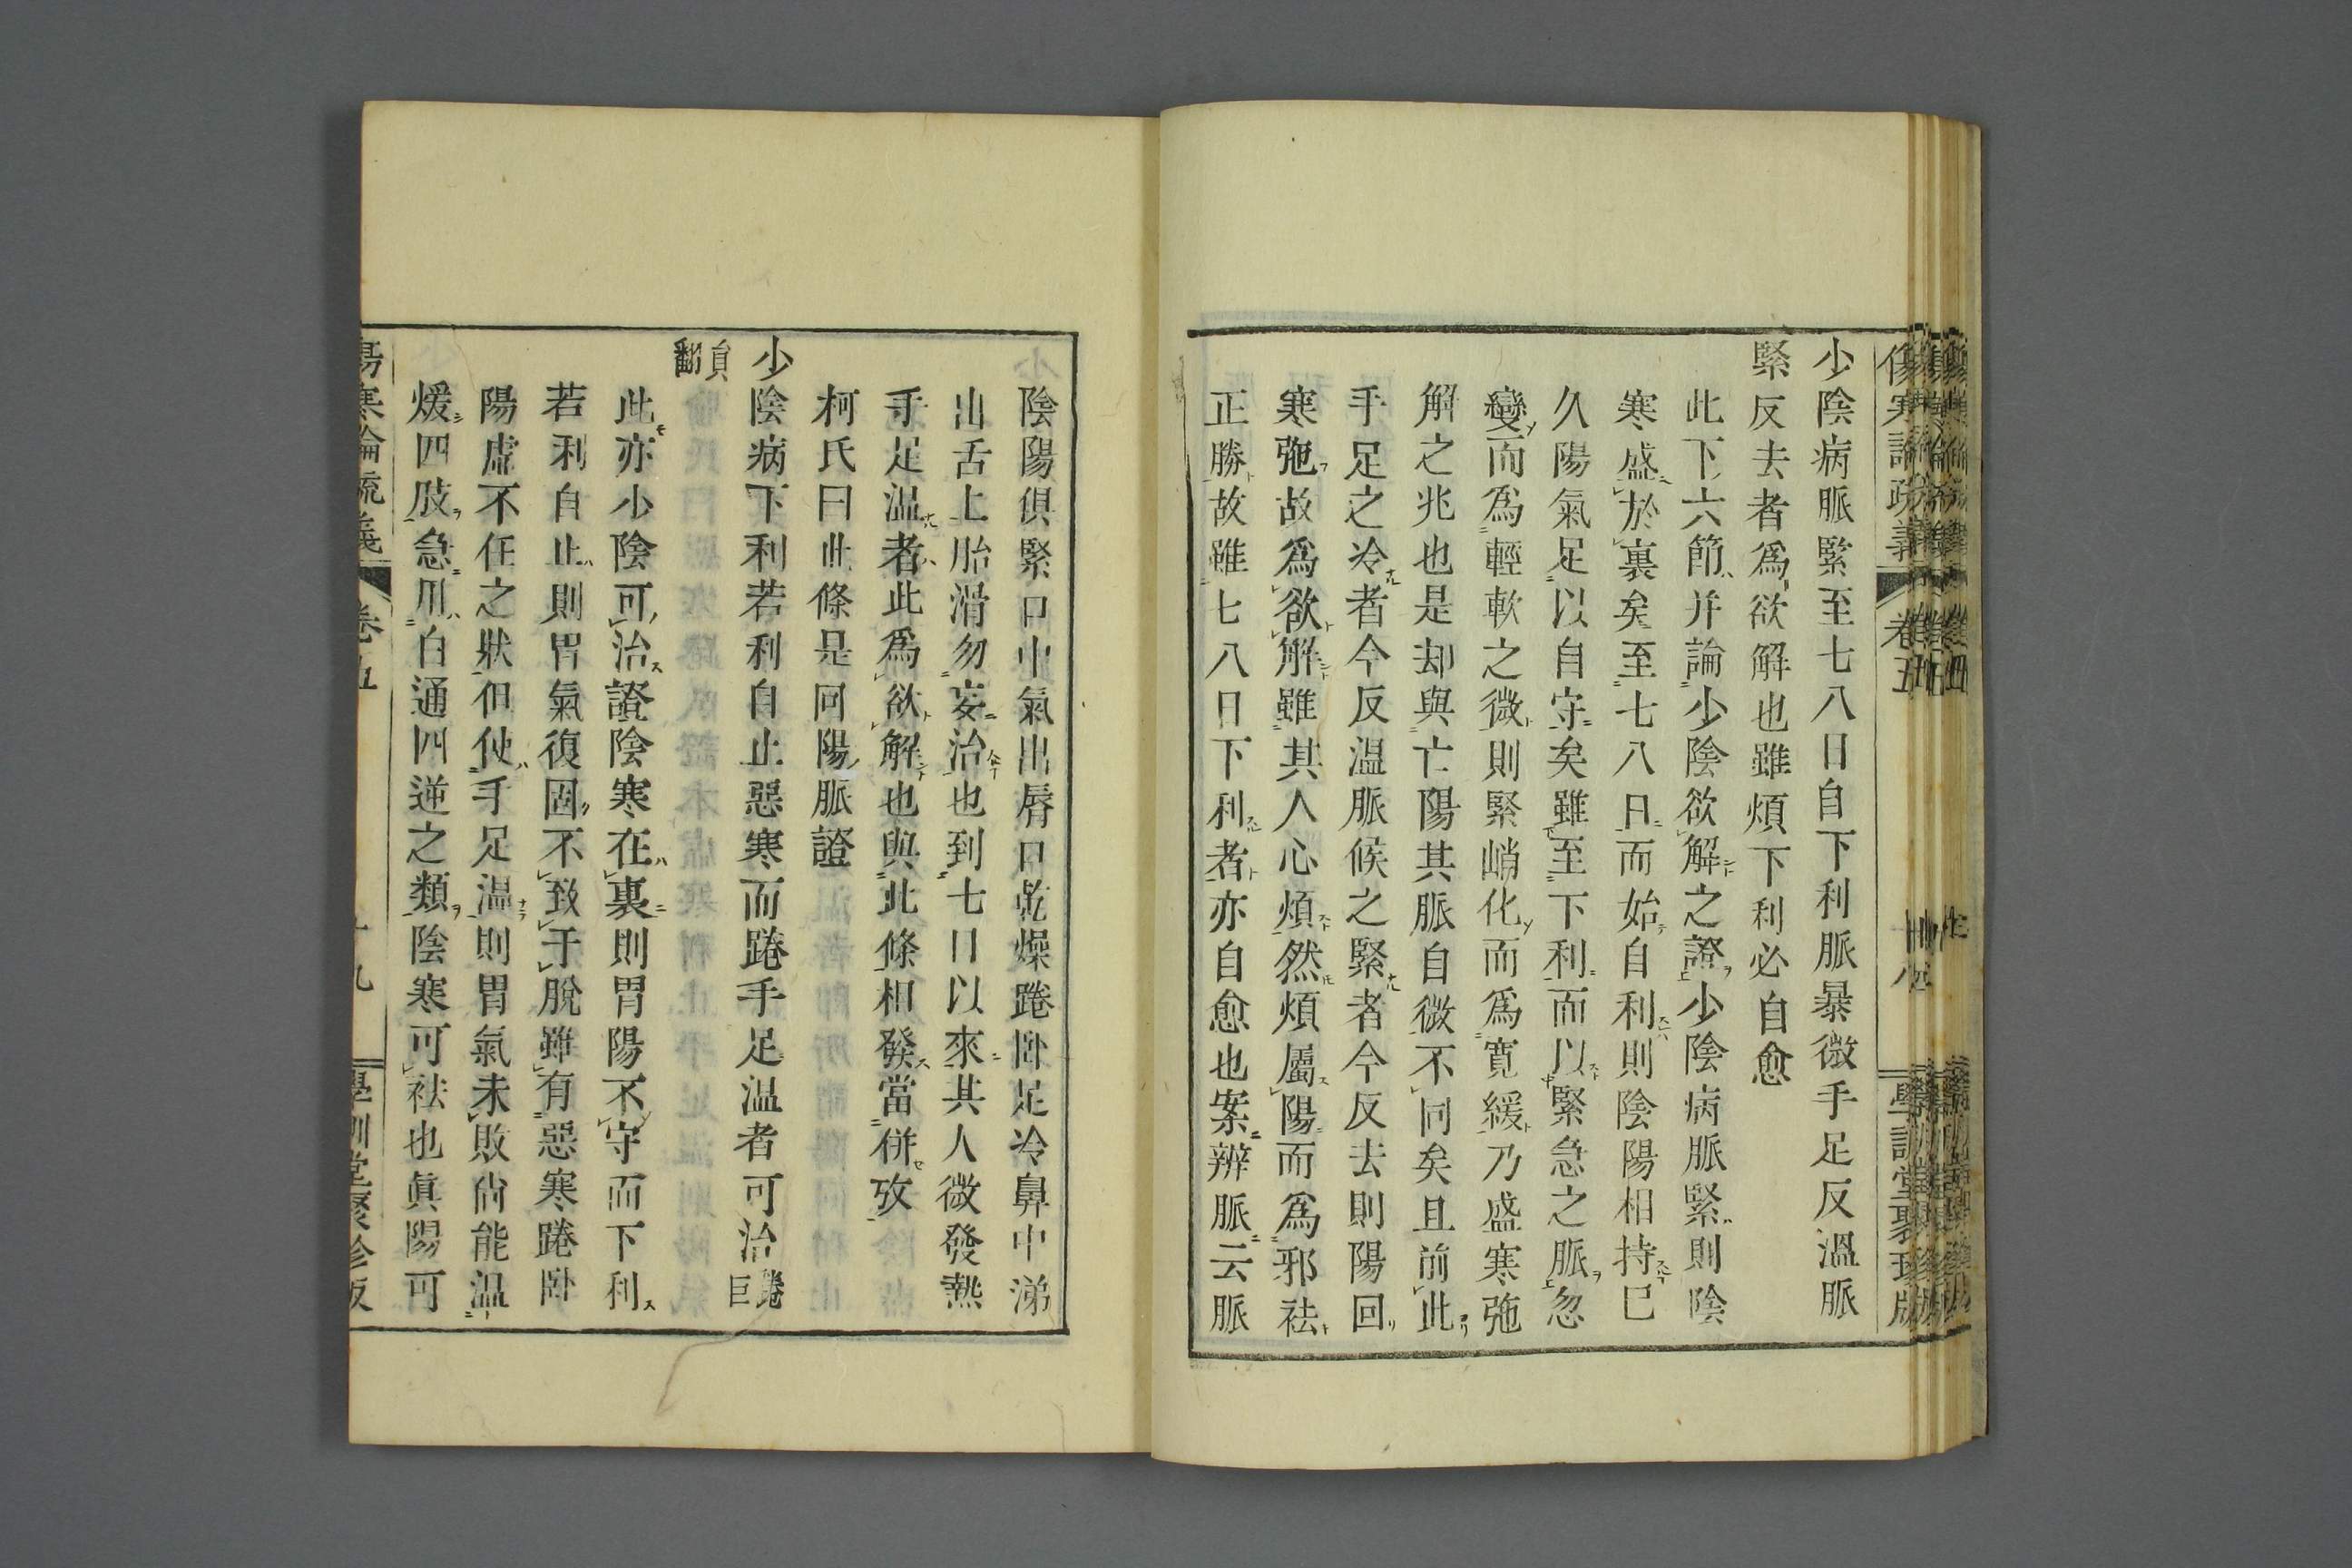 少陰病脈緊至七八日自下利脈暴微手足反溫脈
緊反去者爲欲解也雖煩下利必自愈
此下六節并論少陰欲解之證少陰病脈緊則陰
寒盛於裏矣至七八日而始自利則陰陽相持已
久陽氣足以自守矣雖至下利而以緊急之脈忽
變而爲輕軟之微則緊峭化而爲寬緩乃盛寒弛
解之兆也是却與亡陽其脈自微不同矣且前此
手足之冷者今反温脈候之緊者今反去則陽回
寒弛故爲欲解雖其人心煩然煩屬陽而爲邪祛
正勝故雖七八日下利者亦自愈也案辨脈云脈
傷寒論疏義 卷五 學訓堂聚珍版
陰陽俱緊口中氣出唇口乾燥踡卧足冷鼻中涕
出舌上胎滑勿妄治也到七日以來其人微發熱
手足温者此爲欲解也與此條相發當併攷
柯氏曰此條是回陽脈證
少陰病下利若利自止惡寒而踡手足温者可治 踡巨
員翻
此亦少陰可治證陰寒在裏則胃陽不守而下利
若利自止則胃氣復固不致于脫雖有惡寒踡卧
陽虛不任之狀但使手足温則胃氣未敗尚能温
煖四肢急用白通四逆之類陰寒可祛也眞陽可
傷寒論疏義 卷五 十九 學訓堂聚珍版